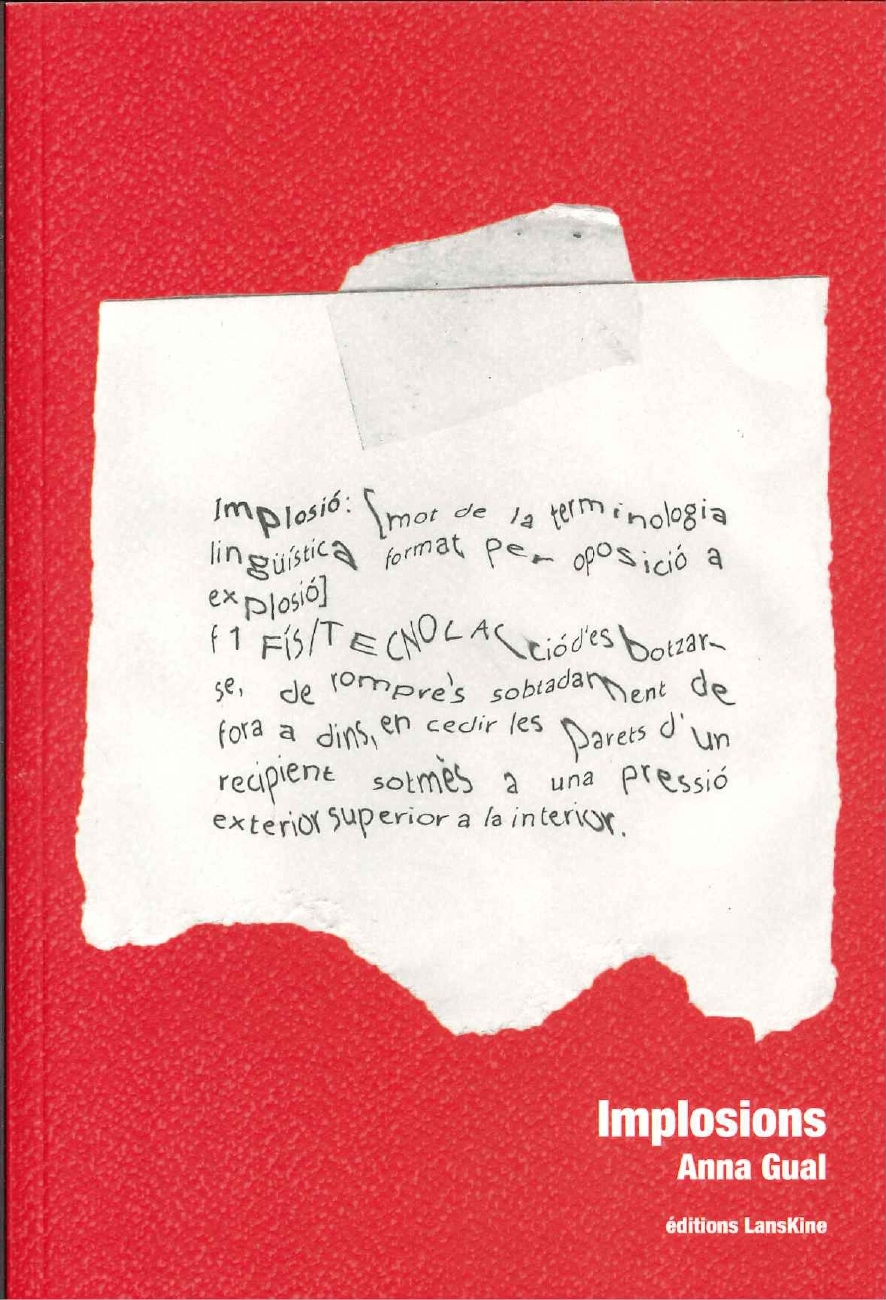 Implosió: [mot de la terminologia
lingüística format per oposició a
explosió]
f 1 FÍS/TECNOL Acció d'esbotzar-
se, de rompre's sobtadament de
fora a dins, en cedir les parets d'un
recipient sotmès a una pressió
exterior superior a la interior.
Implosions
Anna Gual
éditions LansKine